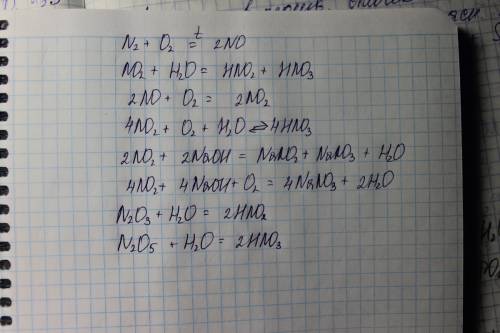 t
N₂ + O₂ = 2NO
NO₂ + H₂O = HNO₂ + HNO₃
2NO + O₂ = 2NO₂
4NO₂ + O₂ + H₂O ⇔ 4HNO₃
2NO₂ + 2NaOH = NaNO₂ + NaNO₃ + H₂O
4NO₂ + 4NaOH + O₂ = 4NaNO₃ + 2H₂O
N₂O₃ + H₂O = 2HNO₂
N₂O₅ + H₂O = 2HNO₃